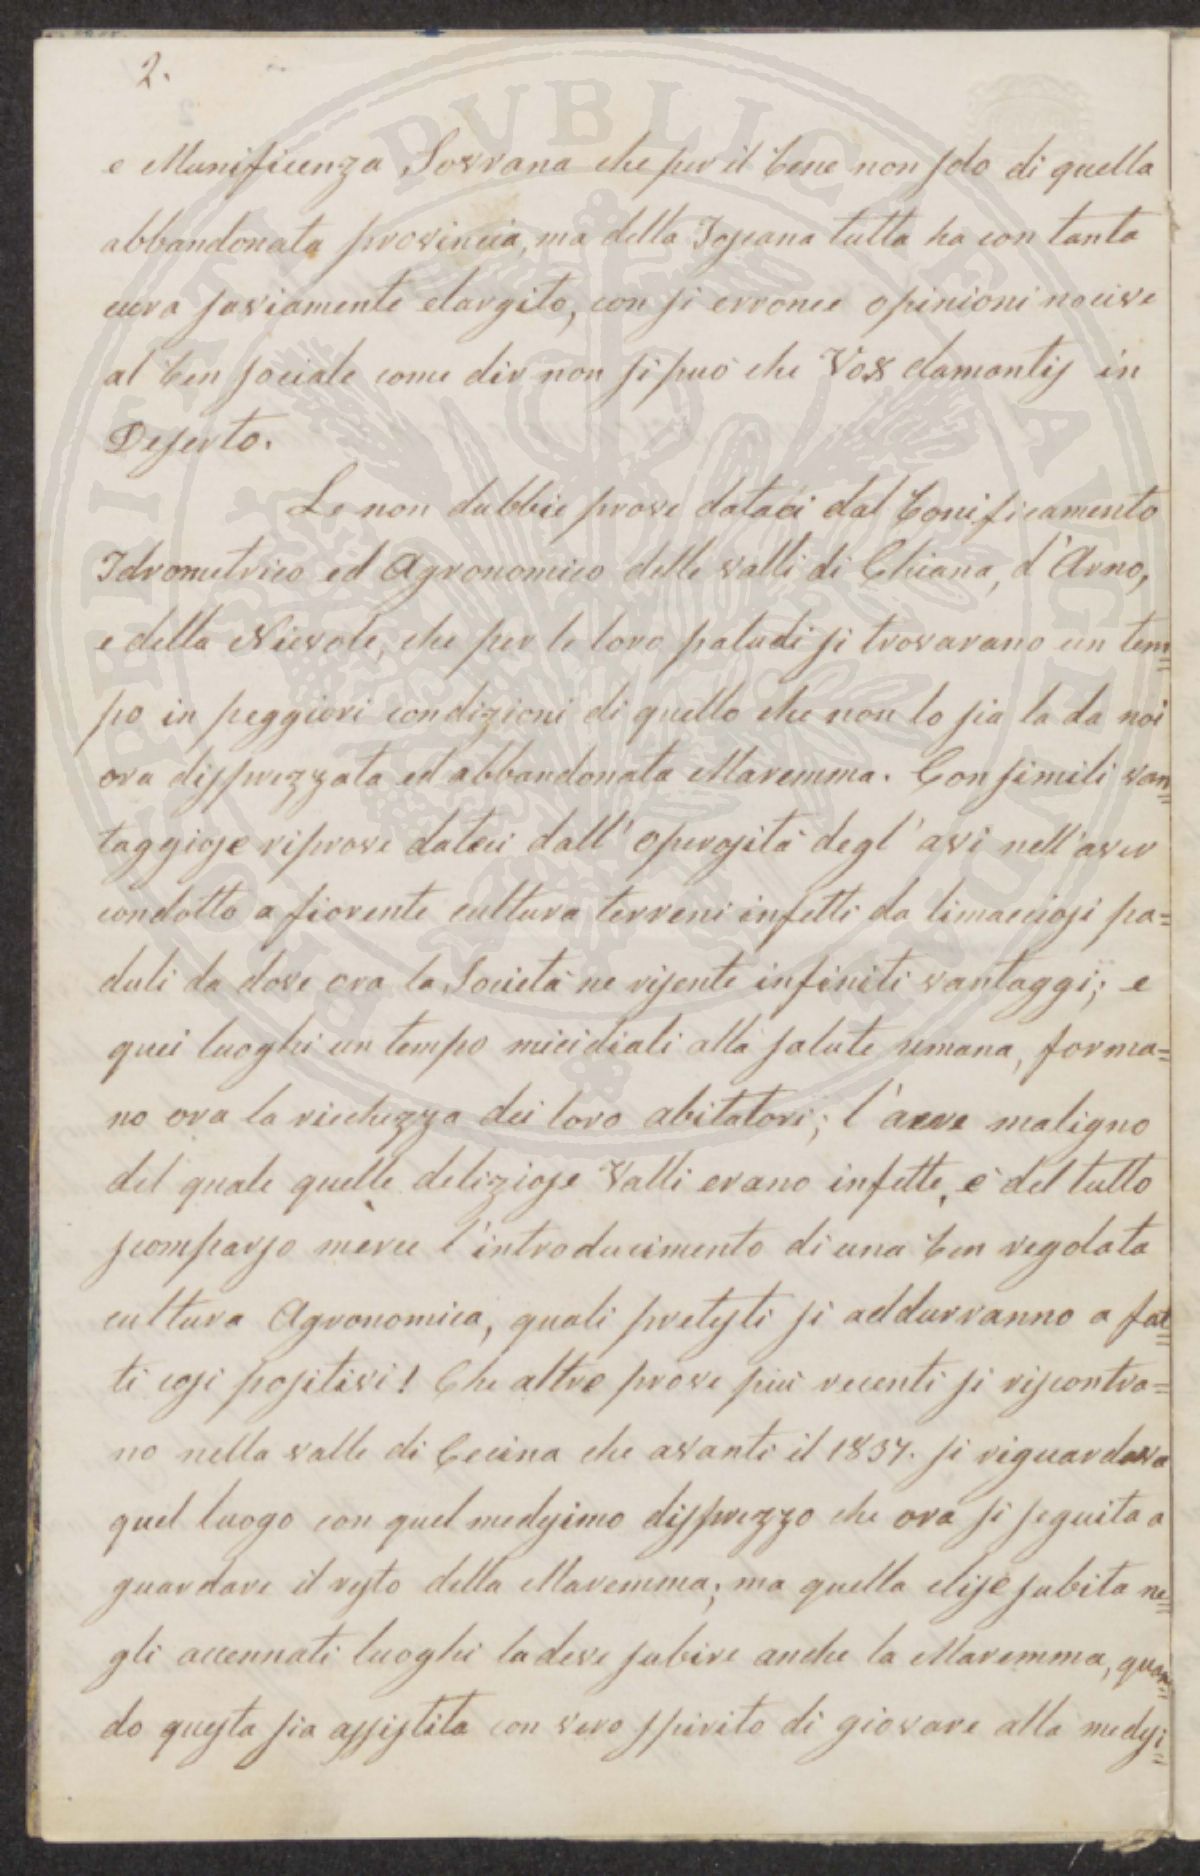 2.
e Munificenza Sovrana che per il bene non solo di quella
abbandonata provincia, ma della Toscana tutta ha con tanta
cura saviamente elargito, con si erronee opinioni nocive
al ben sociale come dir non si può che Vox clamantis in
Deserto.
Le non dubbie prove dataci dal bonificamento
Idrometrico ed Agronomico delle valli di Chiana, d'Arno,
e della Nievole, che per le loro paludi si trovarano un tem=
po in peggiori condizioni di quello che non lo sia la da noi
ora disprezzata ed abbandonata Maremma. Con simili van=
taggiose riprove dateci dall'operosità degl'avi nell'aver
condotto a fiorente cultura terreni infetti da limacciosi pa=
duli da dove ora la Società ne risente infiniti vantaggi; e
quei luoghi un tempo micidiali alla salute umana, forma=
no ora la ricchezza dei loro abitatori; l'aere maligno
del quale quelle deliziose Valli erano infette, è del tutto
scomparso mercè l'introducimento di una ben regolata
cultura Agronomica, quali pretesti si addurranno a fat=
ti così positivi! Che altre prove più recenti si riscontra=
no nella valle di Cecina che avanti il 1837. si riguardava
quel luogo con quel medesimo disprezzo che ora si seguita a
guardare il resto della Maremma; ma quella crise subita ne=
gli accennati luoghi la deve subire anche la Maremma, quan=
do questa sia assistita con vero spirito di giovare alla medesi=
PUBLICAE